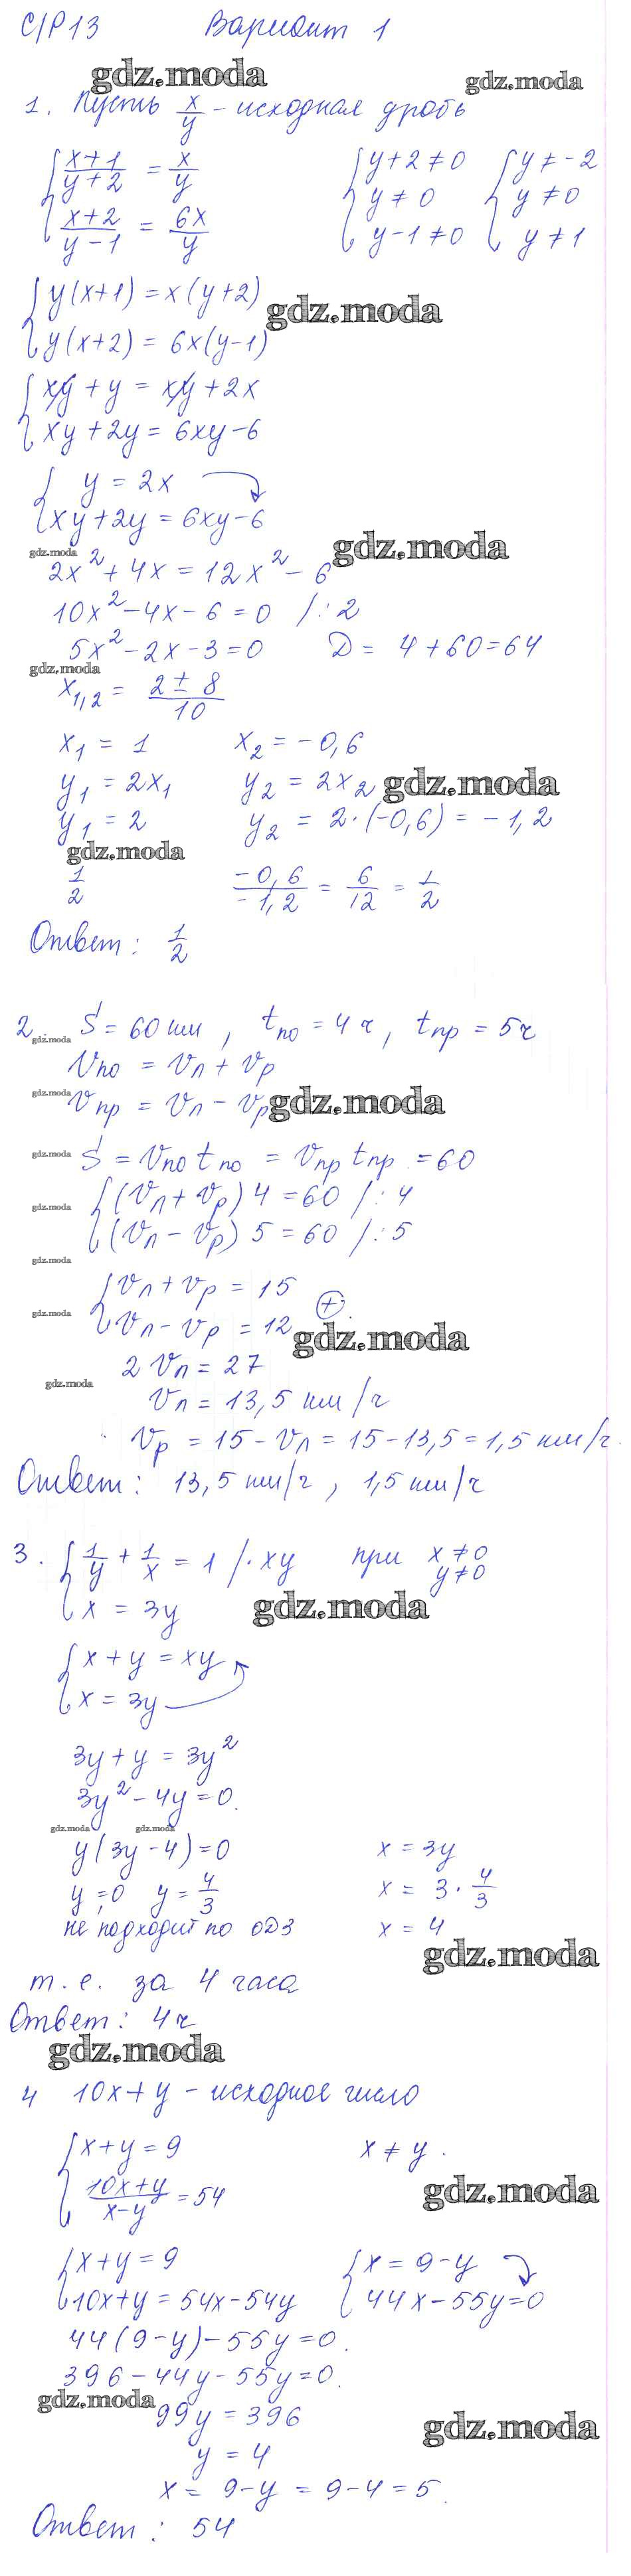 С/Р 13 Вариант 1
gdz.moda gdz.moda
1. Пусть x/y - исходная дробь
{ (x+1)/(y+2) = x/y { y+2 ≠ 0 { y ≠ -2
y ≠ 0 y ≠ 0
(x+2)/(y-1) = 6x/y y-1 ≠ 0 y ≠ 1
{ y(x+1) = x(y+2) gdz.moda
y(x+2) = 6x(y-1)
{ xy + y = xy + 2x
xy + 2y = 6xy - 6
{ y = 2x
xy + 2y = 6xy - 6
gdz.moda gdz.moda
2x² + 4x = 12x² - 6
10x² - 4x - 6 = 0 /:2
5x² - 2x - 3 = 0 D = 4 + 60 = 64
gdz.moda
x₁,₂ = (2 ± 8)/10
x₁ = 1 x₂ = -0,6
y₁ = 2x₁ y₂ = 2x₂ gdz.moda
y₁ = 2 y₂ = 2·(-0,6) = -1,2
gdz.moda
1/2 -0,6/-1,2 = 6/12 = 1/2
Ответ: 1/2
2. S = 60 км, tпо = 4 ч, tпр = 5ч
gdz.moda
Vпо = Vл + Vр
gdz.moda
Vпр = Vл - Vр gdz.moda
gdz.moda S = Vпо tпо = Vпр tпр = 60
gdz.moda { (Vл + Vр) 4 = 60 /:4
(Vл - Vр) 5 = 60 /:5
gdz.moda
{ Vл + Vр = 15
gdz.moda Vл - Vр = 12 (+) gdz.moda
2 Vл = 27
gdz.moda
Vл = 13,5 км/ч
Vр = 15 - Vл = 15 - 13,5 = 1,5 км/ч.
Ответ: 13,5 км/ч, 1,5 км/ч
3. { 1/y + 1/x = 1 /·xy при x ≠ 0
y ≠ 0
x = 3y gdz.moda
{ x + y = xy
x = 3y
3y + y = 3y²
3y² - 4y = 0.
gdz.moda gdz.moda
y(3y - 4) = 0 x = 3y
y = 0 y = 4/3 x = 3 · 4/3
не подходит по ОДЗ x = 4
gdz.moda
т. е. за 4 часа
Ответ: 4ч
gdz.moda
4 10x + y - исходное число
{ x + y = 9 x ≠ y.
(10x+y)/(x-y) = 54 gdz.moda
{ x + y = 9 { x = 9 - y
10x + y = 54x - 54y 44x - 55y = 0
44(9 - y) - 55y = 0.
396 - 44y - 55y = 0.
gdz.moda
99y = 396 gdz.moda
y = 4
x = 9 - y = 9 - 4 = 5.
Ответ: 54